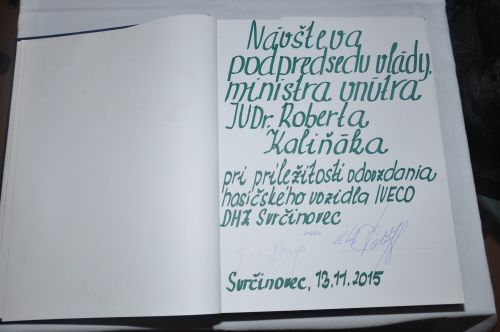 Návšteva
podpredsedu vlády,
ministra vnútra
JUDr. Roberta
Kaliňáka
pri príležitosti odovzdania
hasičského vozidla IVECO
DHZ Svrčinovec
Svrčinovec, 13.11.2015